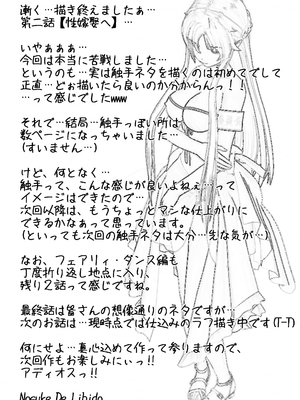 漸く…描き終えましたぁ…
第二話【性嫁襲へ】…
いやぁぁぁ…
今回は本当に苦戦しました…
というのも…実は触手ネタを描くのは初めてでして
正直…どぉ描いたら良いのか分からんっ！！
…って感じでしたwww
それで…結局…触手っぽい所は
数ページになっちゃいました…
(すいません…)
けど、何となく…
触手って、こんな感じが良いよねぇ…って
イメージはできたので…
次回以降は、もうちょっとマシな仕上がりに
できるかなぁって思っています。
(といっても次回の触手ネタは大分…先な気が…)
なお、フェアリィ・ダンス編も
丁度折り返し地点に入り、
残り２話って感じですね。
最終話は皆さんの想像通りのネタですが…
次のお話は…現時点では仕込みのラフ描き中です(T-T)
何にせよ…真心込めて作って参りますので、
次回作もお楽しみにぃっ！！
アディオスっ！！
Nosuke De Libido